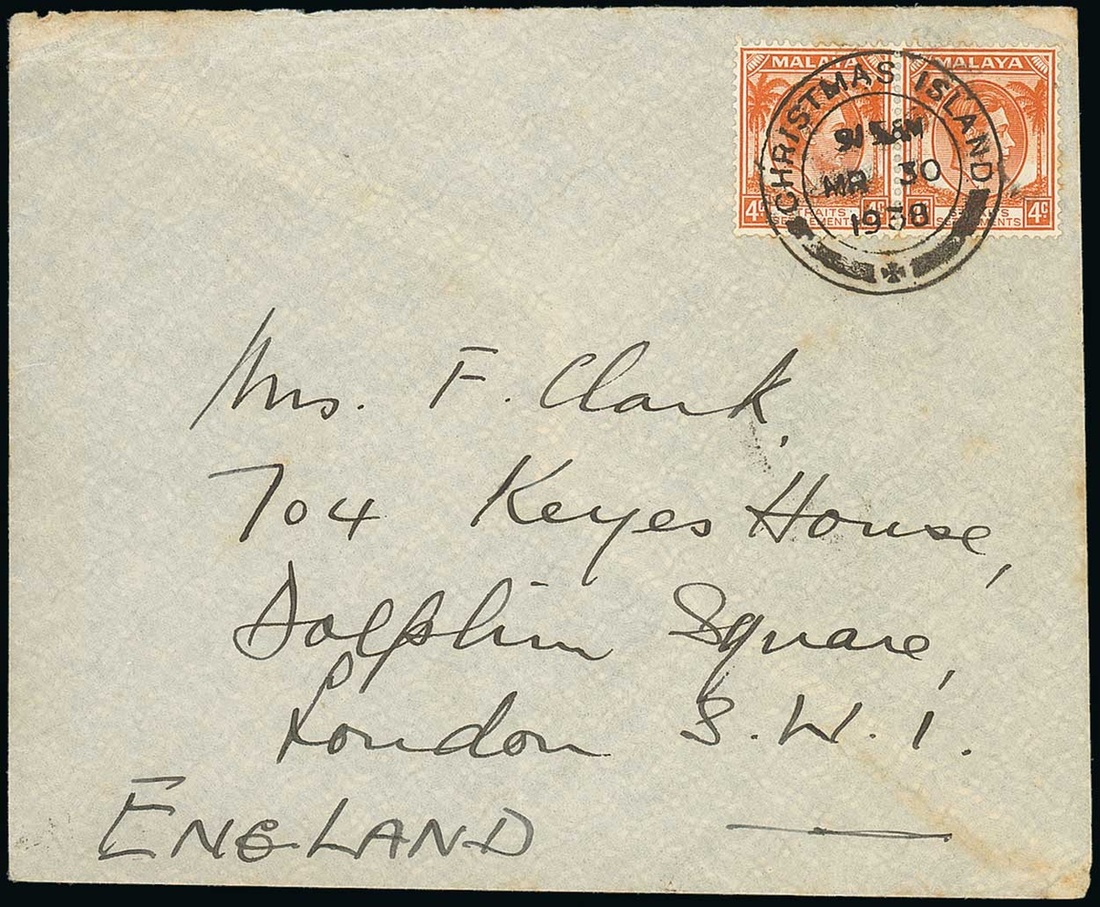 MALAYA MALAYA
CHRISTMAS ISLAND
MR 30
1938
4c 4c 4c
STRAITS
SETTLEMENTS SETTLEMENTS
Mrs. F. Clark,
704 Keyes House,
Dolphin Square,
London S.W.1.
ENGLAND